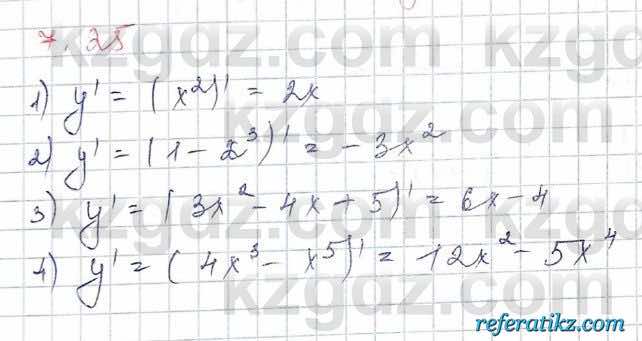 7.25
1) y' = (x²)' = 2x
2) y' = (1 - x³)' = -3x²
3) y' = (3x² - 4x + 5)' = 6x - 4
4) y' = (4x³ - x⁵)' = 12x² - 5x⁴
kzgdz.com
referatikz.com